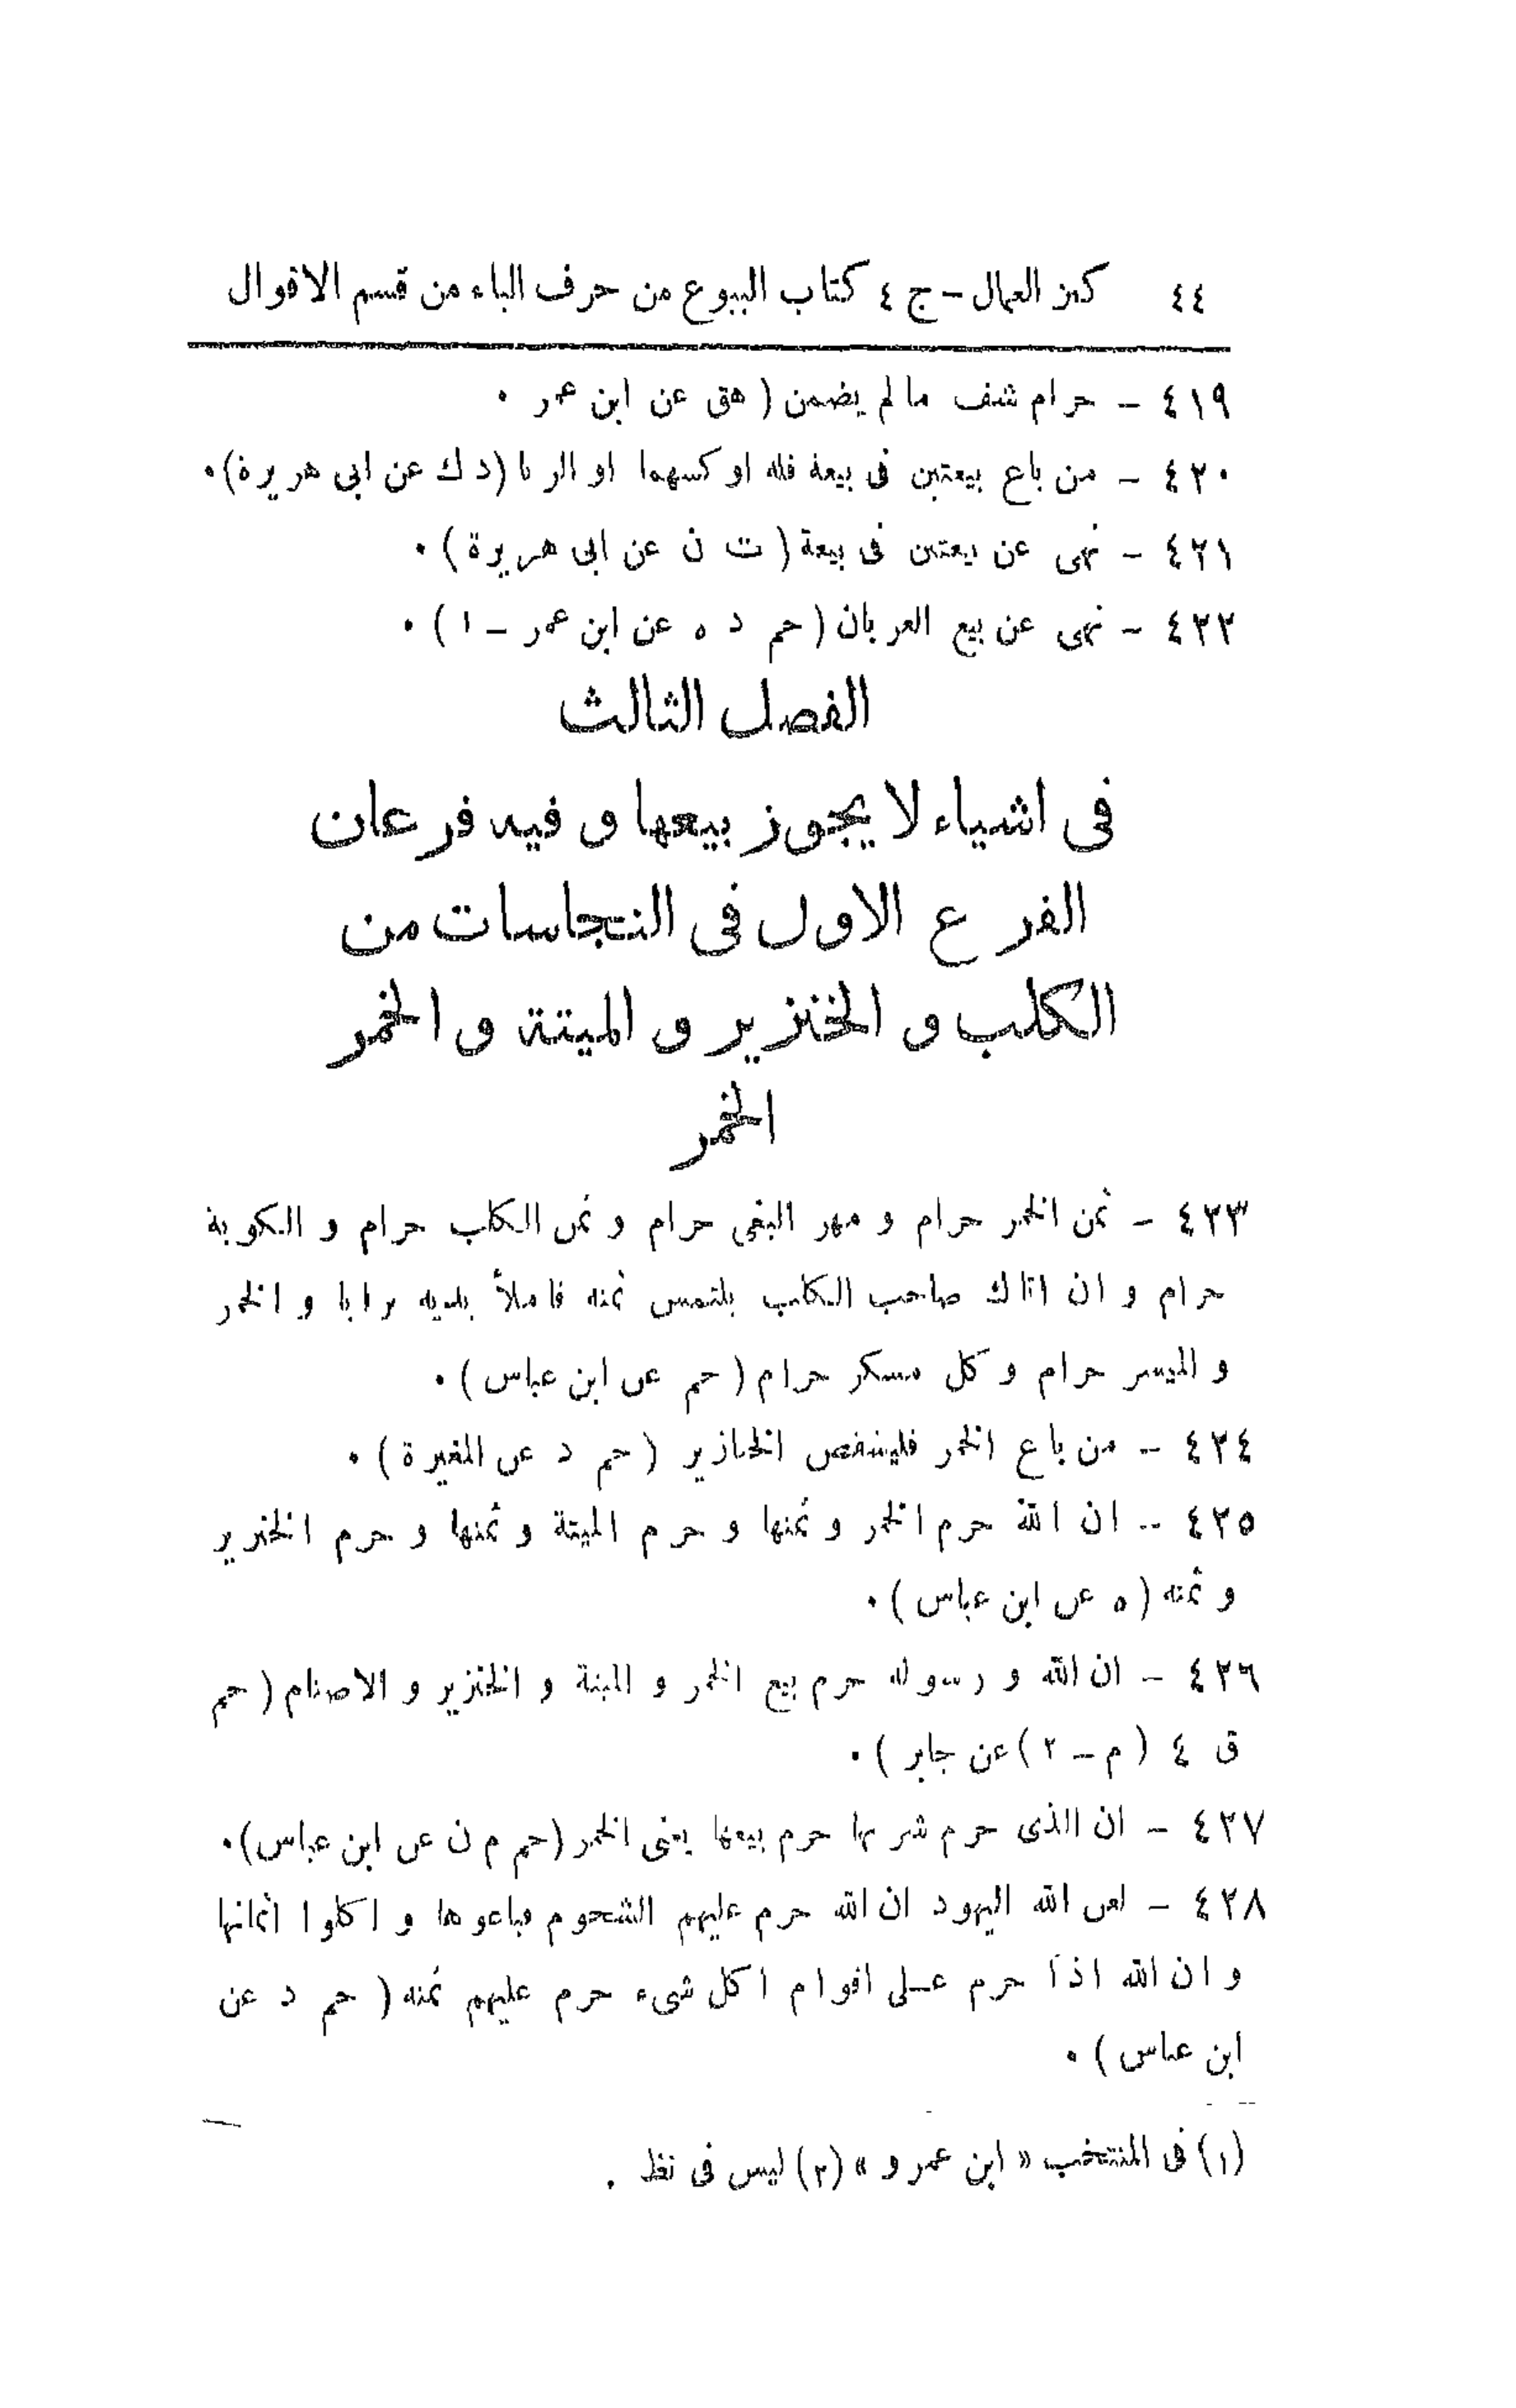 ٤٤ كنز العمال - ج ٤ كتاب البيوع من حرف الباء من قسم الاقوال
٤١٩ - حرام شف مالم يضمن ( هق عن ابن عمر ٠
٤٢٠ - من باع بيعتين فى بيعة فله او كسهما او الربا (د ك عن ابى هريرة)٠
٤٢١ - نهى عن بيعتين فى بيعة ( ت ن عن ابى هريرة ) ٠
٤٢٢ - نهى عن بيع العربان ( حم د ه عن ابن عمر - ١ ) ٠
الفصل الثالث
فى اشياء لا يجوز بيعها و فيه فرعان
الفرع الاول فى النجاسات من
الكلب و الخنزير و الميتة و الخمر
الخمر
٤٢٣ - ثمن الخمر حرام و مهر البغى حرام و ثمن الكلب حرام و الكوبة
حرام و ان اتاك صاحب الكلب يلتمس ثمنه فاملأ يديه ترابا و الخمر
و الميسر حرام و كل مسكر حرام ( حم عن ابن عباس ) ٠
٤٢٤ - من باع الخمر فليشقص الخنازير ( حم د عن المغيرة ) ٠
٤٢٥ - ان الله حرم الخمر و ثمنها و حرم الميتة و ثمنها و حرم الخنزير
و ثمنه ( ه عن ابن عباس ) ٠
٤٢٦ - ان الله و رسوله حرم بيع الخمر و الميتة و الخنزير و الاصنام ( حم
ق ٤ ( م - ٢ ) عن جابر ) ٠
٤٢٧ - ان الذى حرم شربها حرم بيعها يعنى الخمر (حم م ن عن ابن عباس)٠
٤٢٨ - لعن الله اليهود ان الله حرم عليهم الشحوم فباعوها و اكلوا اثمانها
و ان الله اذا حرم على اقوام اكل شىء حرم عليهم ثمنه ( حم د عن
ابن عباس ) ٠
(١) فى المنتخب « ابن عمرو » (٢) ليس فى نظ .